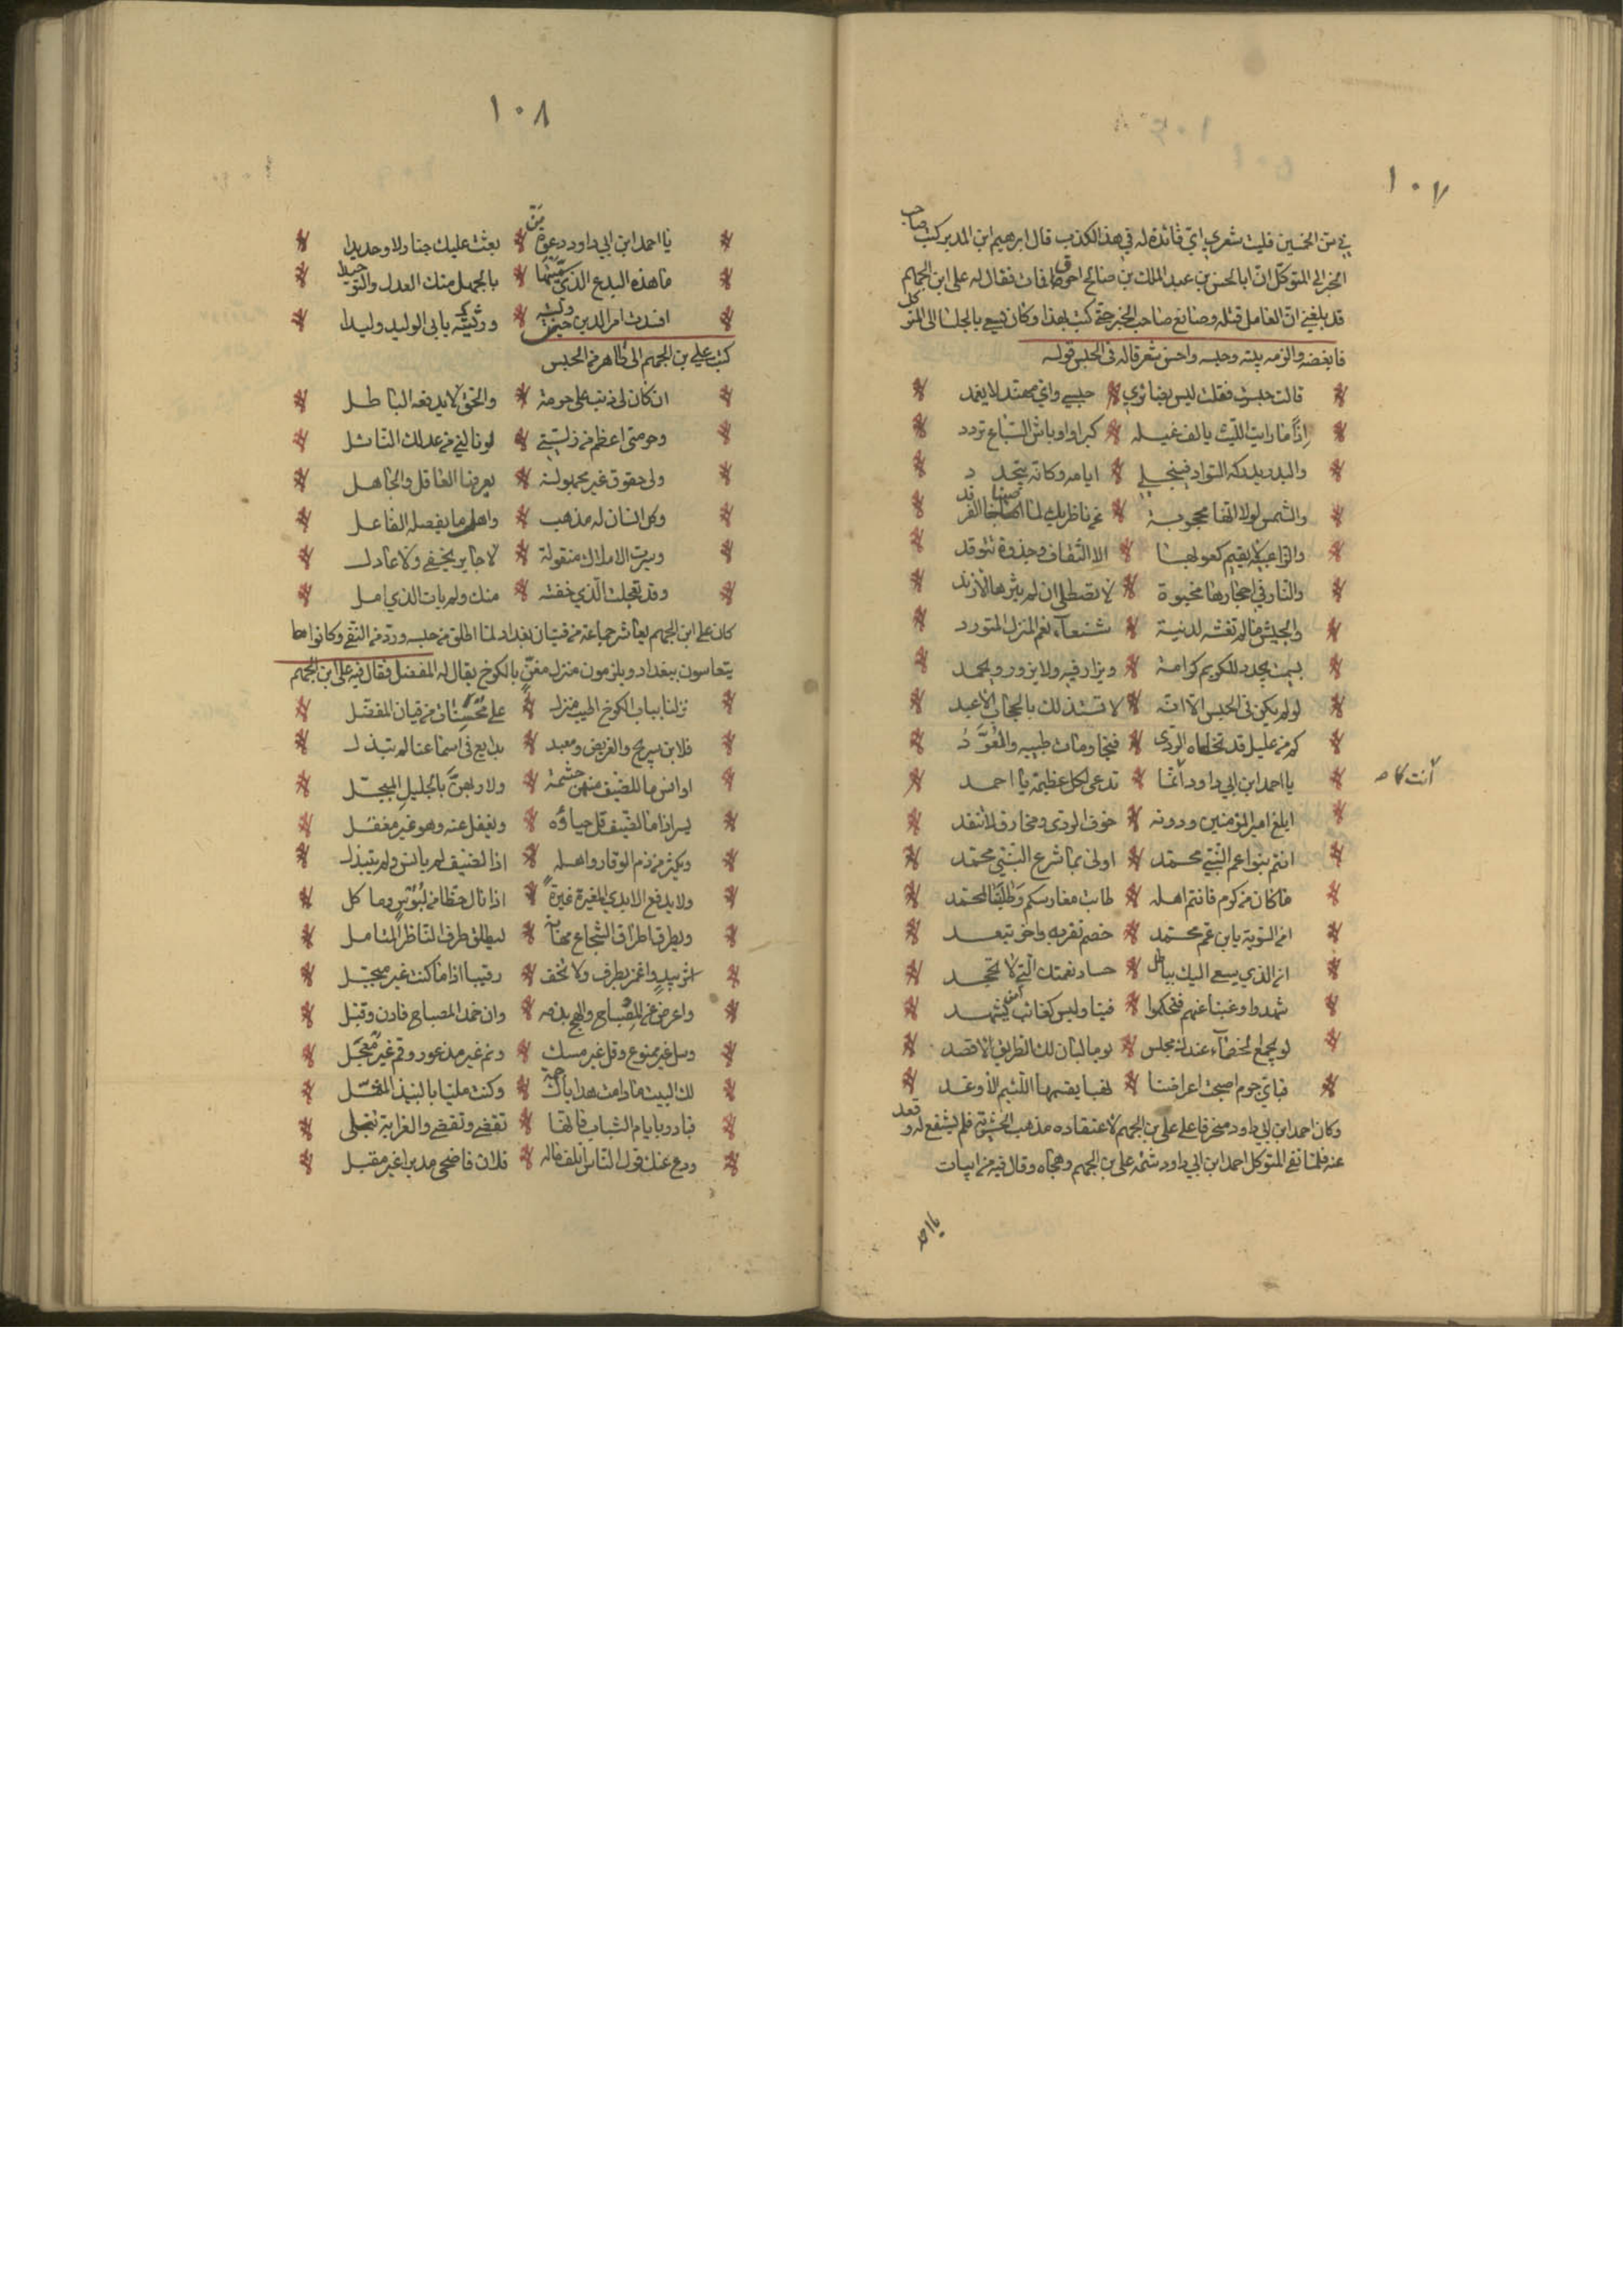 ١٠٧
في سن الخمسين فليت شعري اي فائدة له في هذا الكذب قال ابرهيم ابن المدبر كتب صاحب
الخبر الى المتوكل ان ابا الحسن بن عبد الملك بن صالح احترق فمات فقال له علي ابن الجهم
قد بلغني ان العامل قتله وصانع صاحب الخبر حتى كتب بهذا وكان يسعى بالجلسا الى المتوكل
فابغضه والزمه بيته وحبسه واحسن شعر قاله في الحبس قوله
قالت حبست فقلت ليس بضائري * حبسي واي مهند لا يغمد
اذا ما رايت الليث يالف غيله * كبرا واوباش السباع تردد
والبدر يدركه السواد فينجلي * ايامه وكانه يتجدد
والشمس لولا انها محجوبة * عن ناظريك لما اضا الفرقد
والزاعبية لا يقيم كعوبها * الا الثقاف وجذوة تتوقد
والنار في احجارها مخبوة * لا تصطلى ان لم يثرها الازند
والحبس ما لم تغشه لدنية * شنعاء نعم المنزل المتورد
بيت يجدد للكريم كرامة * ويزار فيه ولا يزور ويحمد
لو لم يكن في الحبس الا انه * لا تستذلك بالحجاب الاعبد
كم من عليل قد تخطاه الردى * فنجا ومات طبيبه والعُوَّدُ
يا احمد ابن ابي داود انما * تدعى لكل عظيمة يا احمد
ابلغ امير المؤمنين ودونه * خوف الردى ومخاوف لا تنفد
انتم بنو اعم النبي محمد * اولى بما شرع النبي محمد
ما كان من كرم فانتم اهله * طابت مغارسكم وطاب المحتد
امن السوية يابن عم محمد * خصم تقربه واخر تبعد
ان الذي يسعى اليك بباطل * حساد نعمتك التي لا تجحد
شهدوا وغبنا عنهم فتحكموا * فينا وليس كغائب من يشهد
لو يجمع الخصماء عندك مجلس * يوما لبان لك الطريق الاقصد
فباي جرم اصبحت اعراضنا * نهبا يقسمها اللئيم الاوغد
وكان احمد ابن ابي داود منحرفا على علي بن الجهم لاعتقاده مذهب الحشوية فلم يشفع له وقعد
عنه فلما نفى المتوكل احمد ابن ابي داود شمت علي بن الجهم وهجاه وقال فيه من ابيات
يا احمد
١٠٨
يا احمد ابن ابي داود دعوة * بعثت عليك جنادلا وحديدا
ما هذه البدع الذي سميتها * بالجهل منك العدل والتوحيد
افسدت امر الدين حين وليته * ورميته بابي الوليد وليدا
كتب علي بن الجهم الى طاهر من الحبس
ان كان لي ذنب فلي حرمة * والحق لا يدفعه الباطل
وحرمتي اعظم من زلتي * لو نالني من عدلك النائل
ولي حقوق غير مجهولة * يعرفها العاقل والجاهل
وكل انسان له مذهب * واهله ما يفعله الفاعل
وسيرة الاملاك منقولة * لا جاير يخفى ولا عادل
وقد تعجلت الذي خفته * منك ولم يات الذي امل
كان علي ابن الجهم يعاشر جماعة من فتيان بغداد لما اطلق من حبسه ورد من النفي وكانوا
يتعاشون ببغداد ويلزمون منزل مغنٍ بالكرخ يقال له المفضل فقال فيه علي ابن الجهم
نزلنا بباب الكرخ اطيب منزل * على محسنات من قيان المفضل
فلابن سريج والغريض ومعبد * بدايع في اسماعنا لم تبذل
اوانس ما للضيف منهن حشمة * ولا ربهن بالجليل المبجل
يسر اذا ما الضيف قل حياؤه * ويغفل عنه وهو غير مغفل
ويكثر من ذم الوقار واهله * اذا الضيف لم يانس ولم يتبذل
ولا يدفع الايدي المغيرة غيرة * اذا نال حظا من لبوس وماكل
ويطرق اطراق الشجاع مهابة * ليطلق طرف الناظر المتامل
اشر بيدٍ واغمز بطرف ولا تخف * رقيبا اذا ما كنت غير مبجل
واعرض عن المصباح والهج بذمه * وان خمد المصباح فادن وقبل
وسل غير ممنوع وقل غير مسكت * ونم غير مذعور وقم غير معجل
لك البيت ما دامت هداياك جمة * وكنت مليا بالنبيذ المعسل
فبادر بايام الشباب فانها * تقضى وتقضي والغراية تنجلى
ودع عنك قول الناس اتلف ماله * فلان فاضحى مدبرا غير مقبل